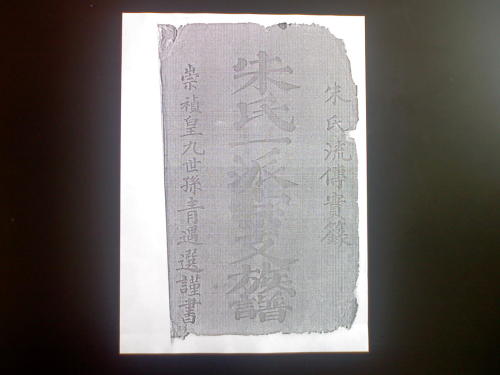 朱氏流傳實錄
朱氏一派支族譜
崇禎皇九世孫青遇選謹書